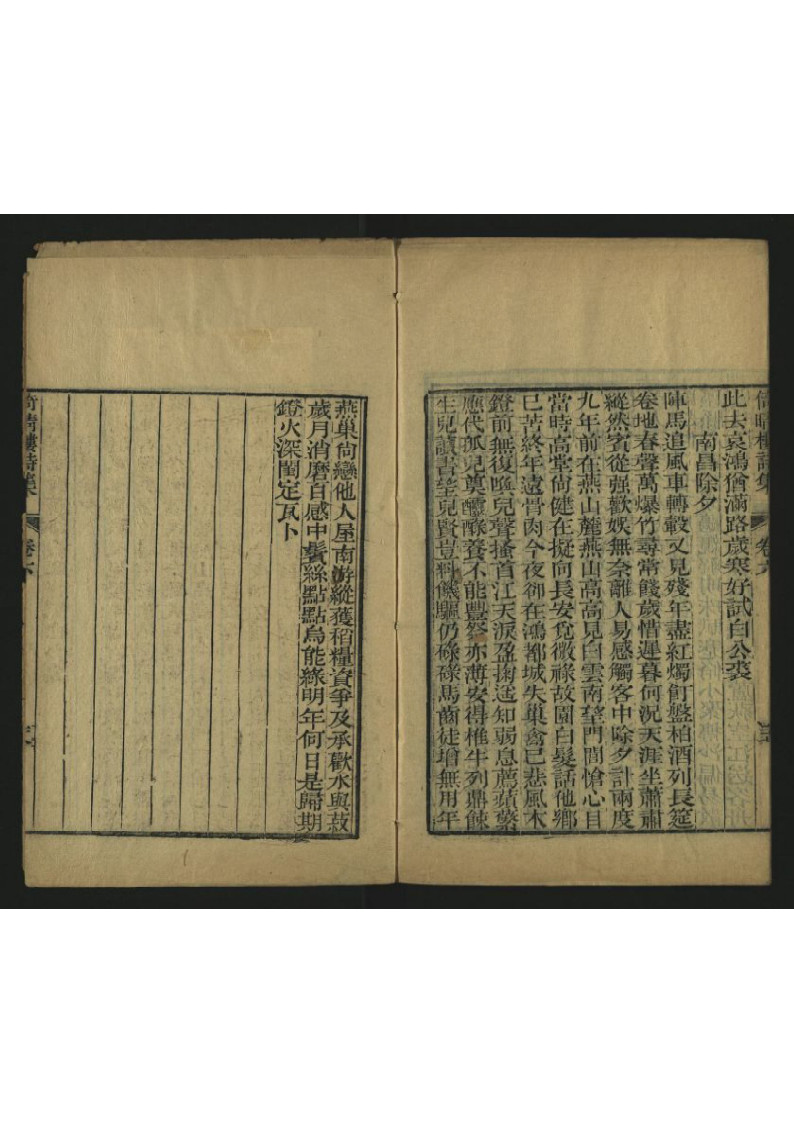 倚晴樓詩集
卷六
此去哀鴻猶滿路歲寒好試白公裘
南昌除夕
陣馬追風車轉轂又見殘年盡紅燭飣盤柏酒列長筵
卷地春聲萬爆竹尋常餞歲惜遲暮何況天涯坐蕭肅
縱然賓從强歡娱無奈離人易感觸客中除夕計兩度
九年前在燕山麓燕山高高見白雲南望門閭愴心目
當時高堂尙健在擬向長安覓微祿故園白髮話他鄉
已苦終年遠骨肉今夜御在鴻都城失巢禽已悲風木
鐙前無復喚兒聲搔首江天淚盈掬遥知弱息薦蘋蘩
應代孤兒奠醽醁養不能豐祭亦薄安得椎牛列鼎餗
生兒讀書望兒賢豈料饑驅仍碌碌馬齒徒增無用年
燕巢尙戀他人屋南游縱獲稻糧資爭及承歡水與菽
歲月消磨百感中鬢絲點點烏能綠明年何日是歸期
鐙火深閨定瓦卜
倚晴樓詩集
卷六